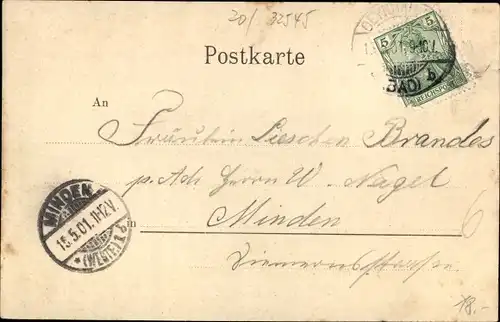 20/ 32545
Postkarte
5
REICHSPOST
(BAD) b
An
Fräulein Lieschen Brandes
p. Adr. Herrn W. Nagel
in Minden
MINDEN
13.5.01. 11-12V.
* (WESTF.) 1 b
6
18.-